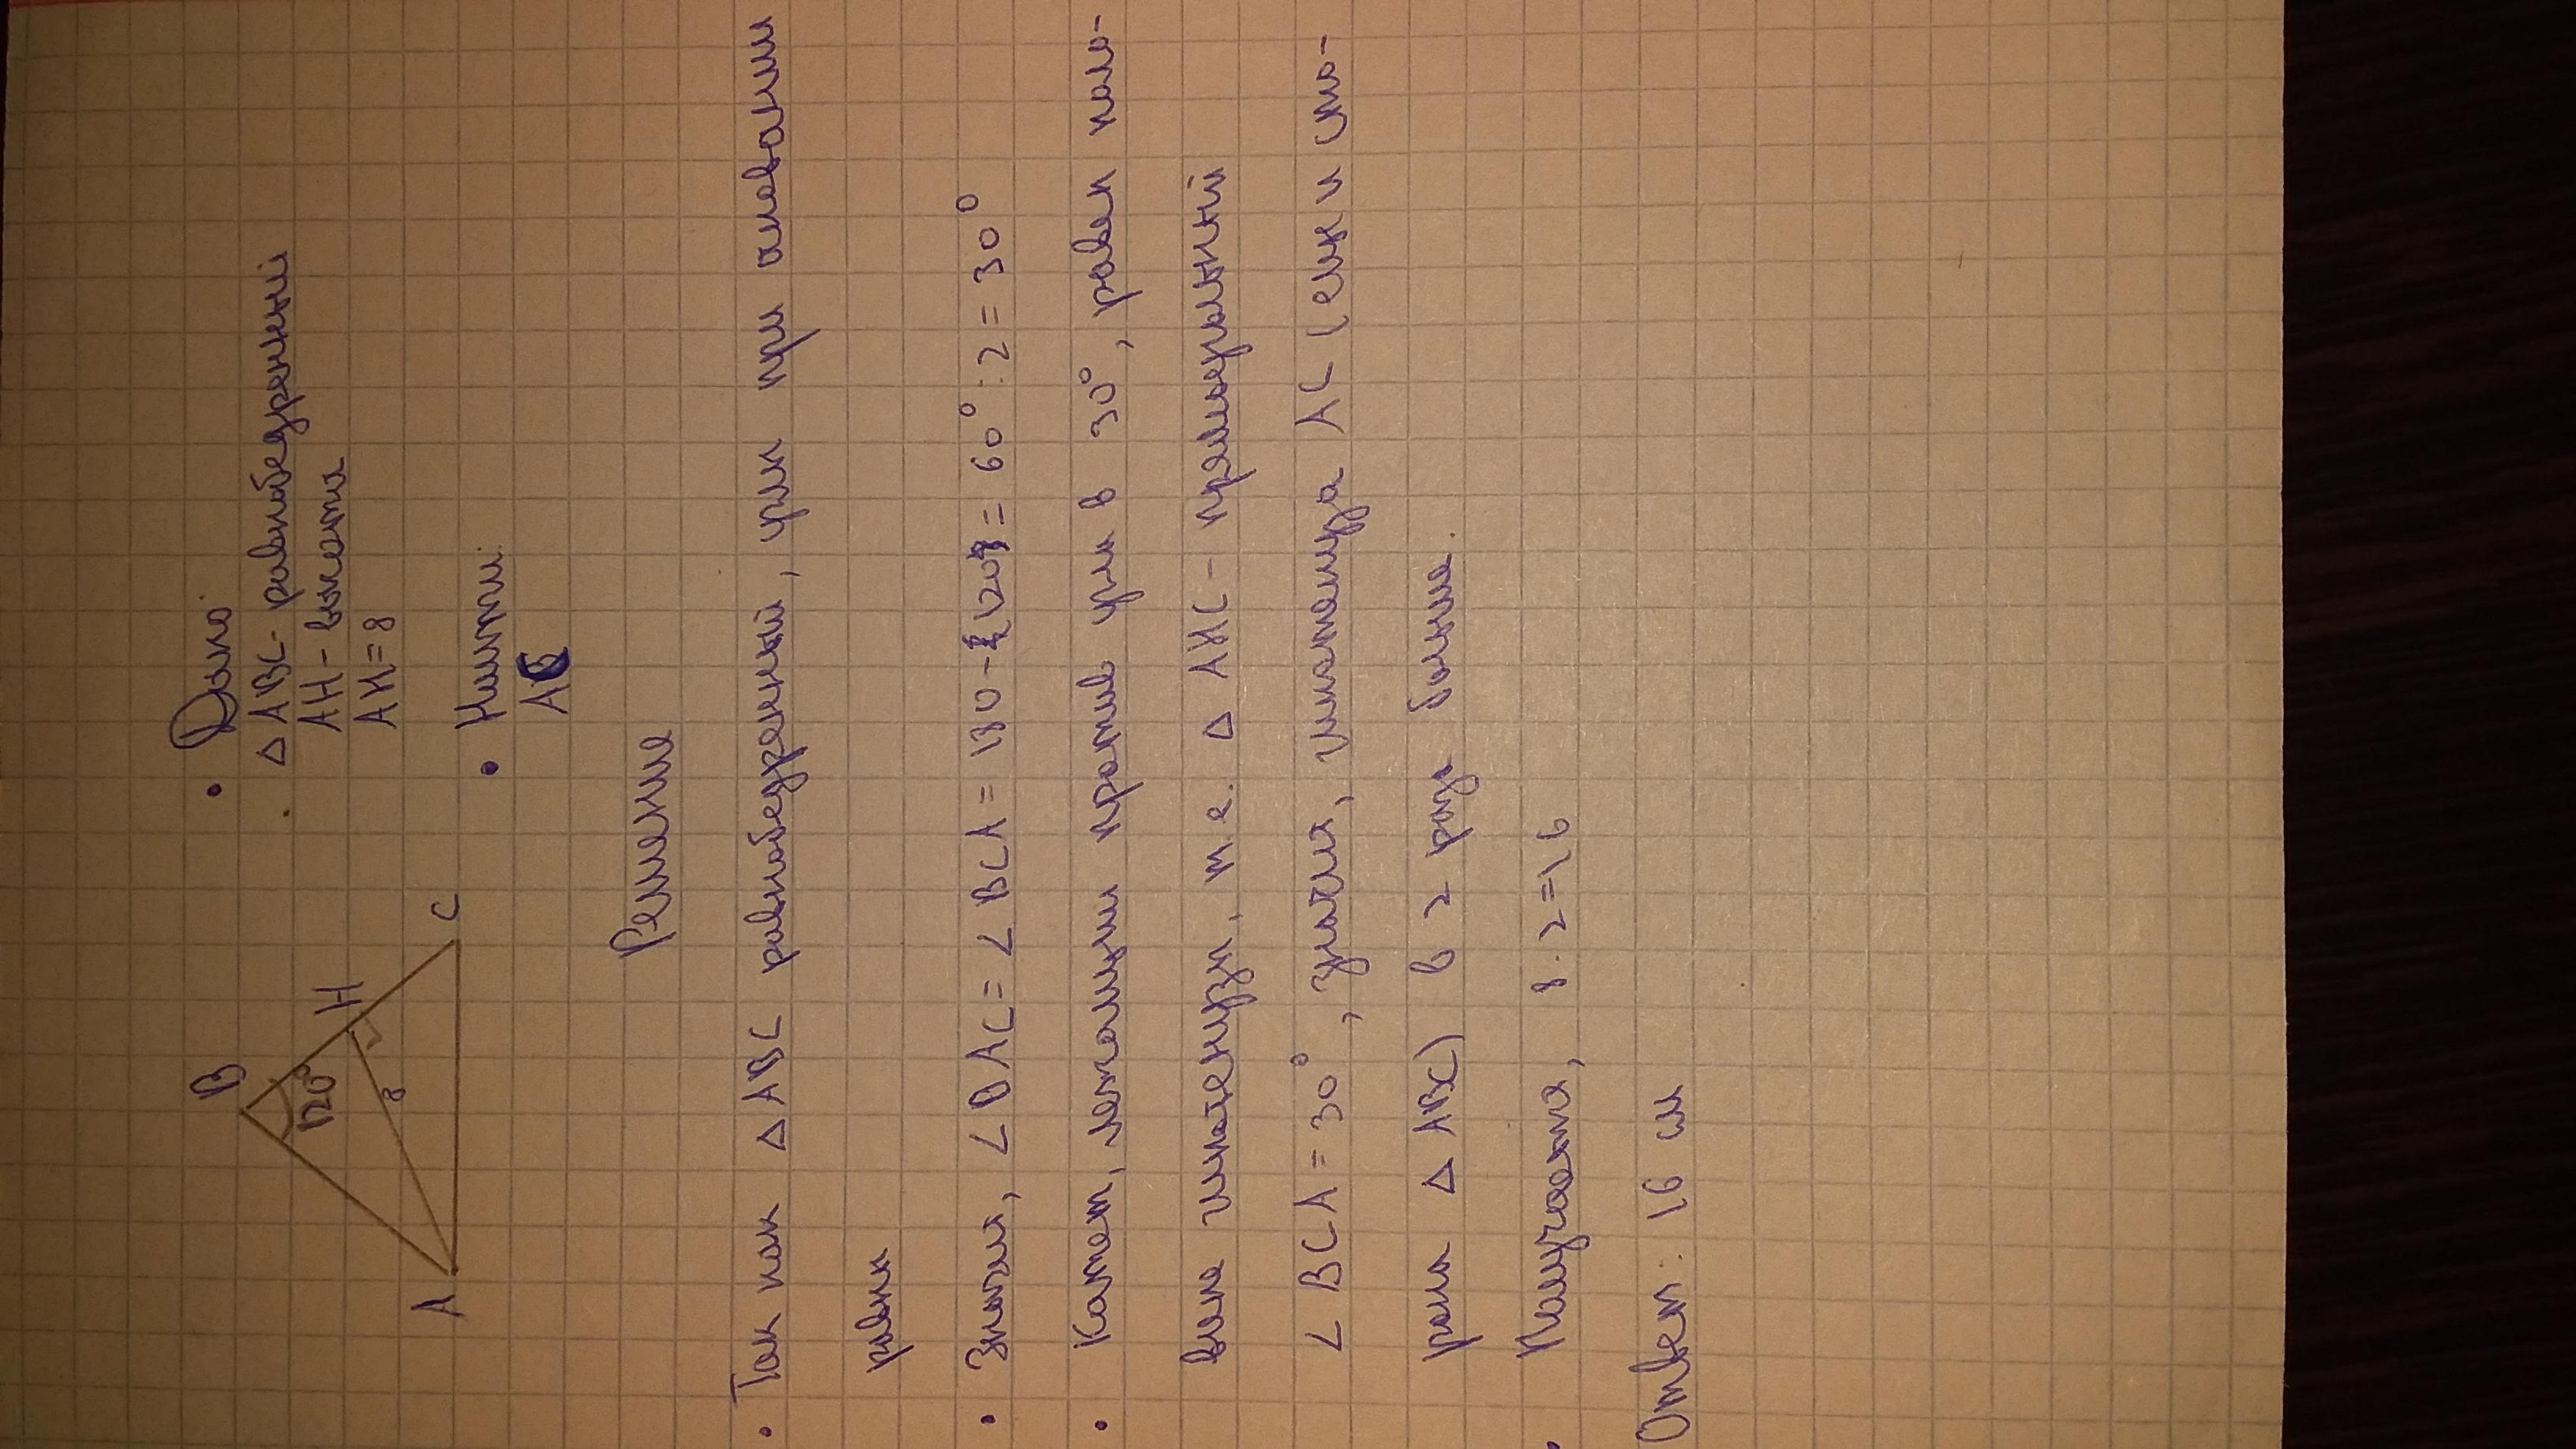 B
120°
H
8
A
C
• Дано:
△ ABC - равнобедренный
AH - высота
AH = 8
• Найти:
AC
Решение
• Так как △ ABC равнобедренный, углы при основании
равны
• Значит, ∠BAC = ∠BCA = 180 - (120°) = 60° : 2 = 30°
• Катет, лежащий против угла в 30°, равен поло-
вине гипотенузы, т.е. △ AHC - прямоугольный
∠ BCA = 30°, значит, гипотенуза AC (она и сто-
рона △ ABC) в 2 раза больше.
• Получается, 8 · 2 = 16
Ответ: 16 см